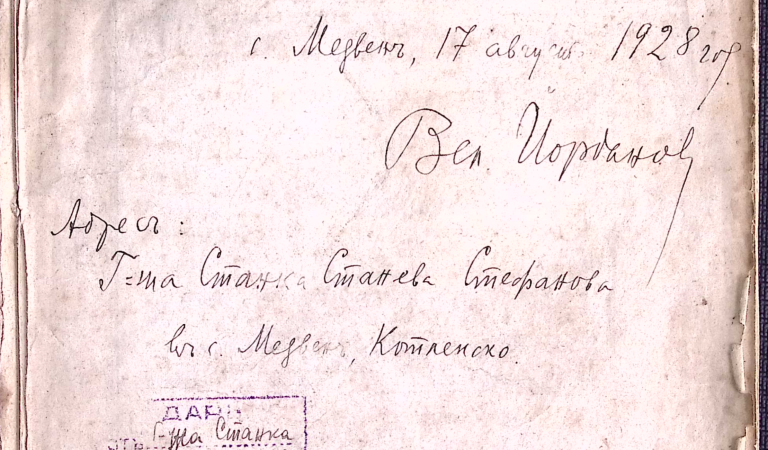 с. Медвенъ, 17 август. 1928 год
Вел. Йорданов
Адресъ:
Г=жа Станка Станева Стефанова
въ с. Медвенъ, Котленско.
ДАРЪ
отъ Г-жа Станка